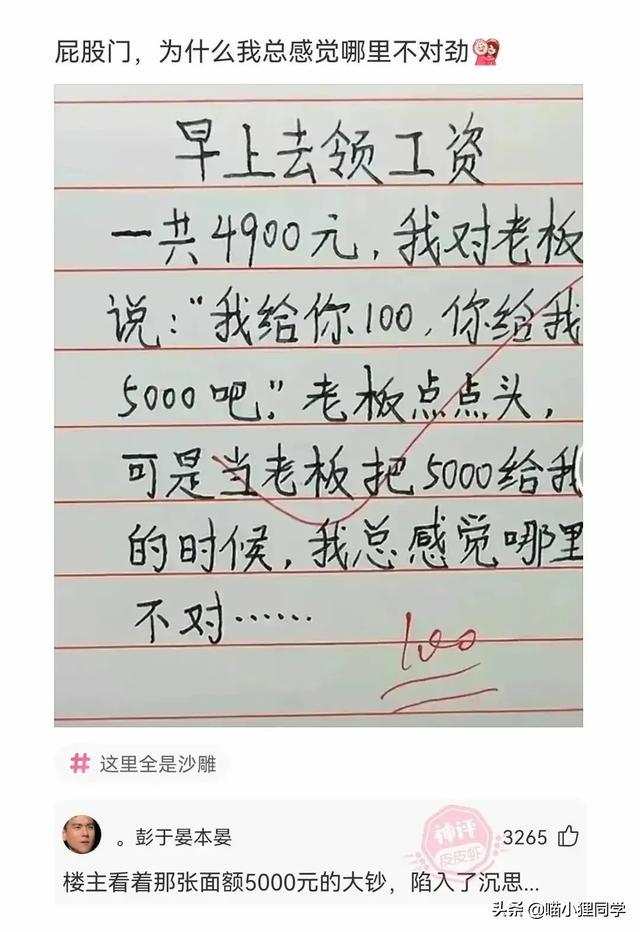 屁股门，为什么我总感觉哪里不对劲
早上去领工资
一共4900元，我对老板
说："我给你100，你给我
5000吧."老板点点头，
可是当老板把5000给我
的时候，我总感觉哪里
不对……
100
#这里全是沙雕
。彭于晏本晏
神评
皮皮虾
3265
楼主看着那张面额5000元的大钞，陷入了沉思...
头条 @喵小狸同学